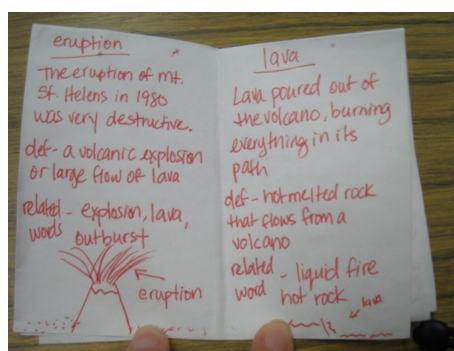 eruption
The eruption of mt.
St. Helens in 1980
was very destructive.
def - a volcanic explosion
or large flow of lava
related - explosion, lava,
words outburst
eruption
lava
Lava poured out of
the volcano, burning
everything in its
path
def - hot melted rock
that flows from a
volcano
related - liquid fire
word hot rock
lava